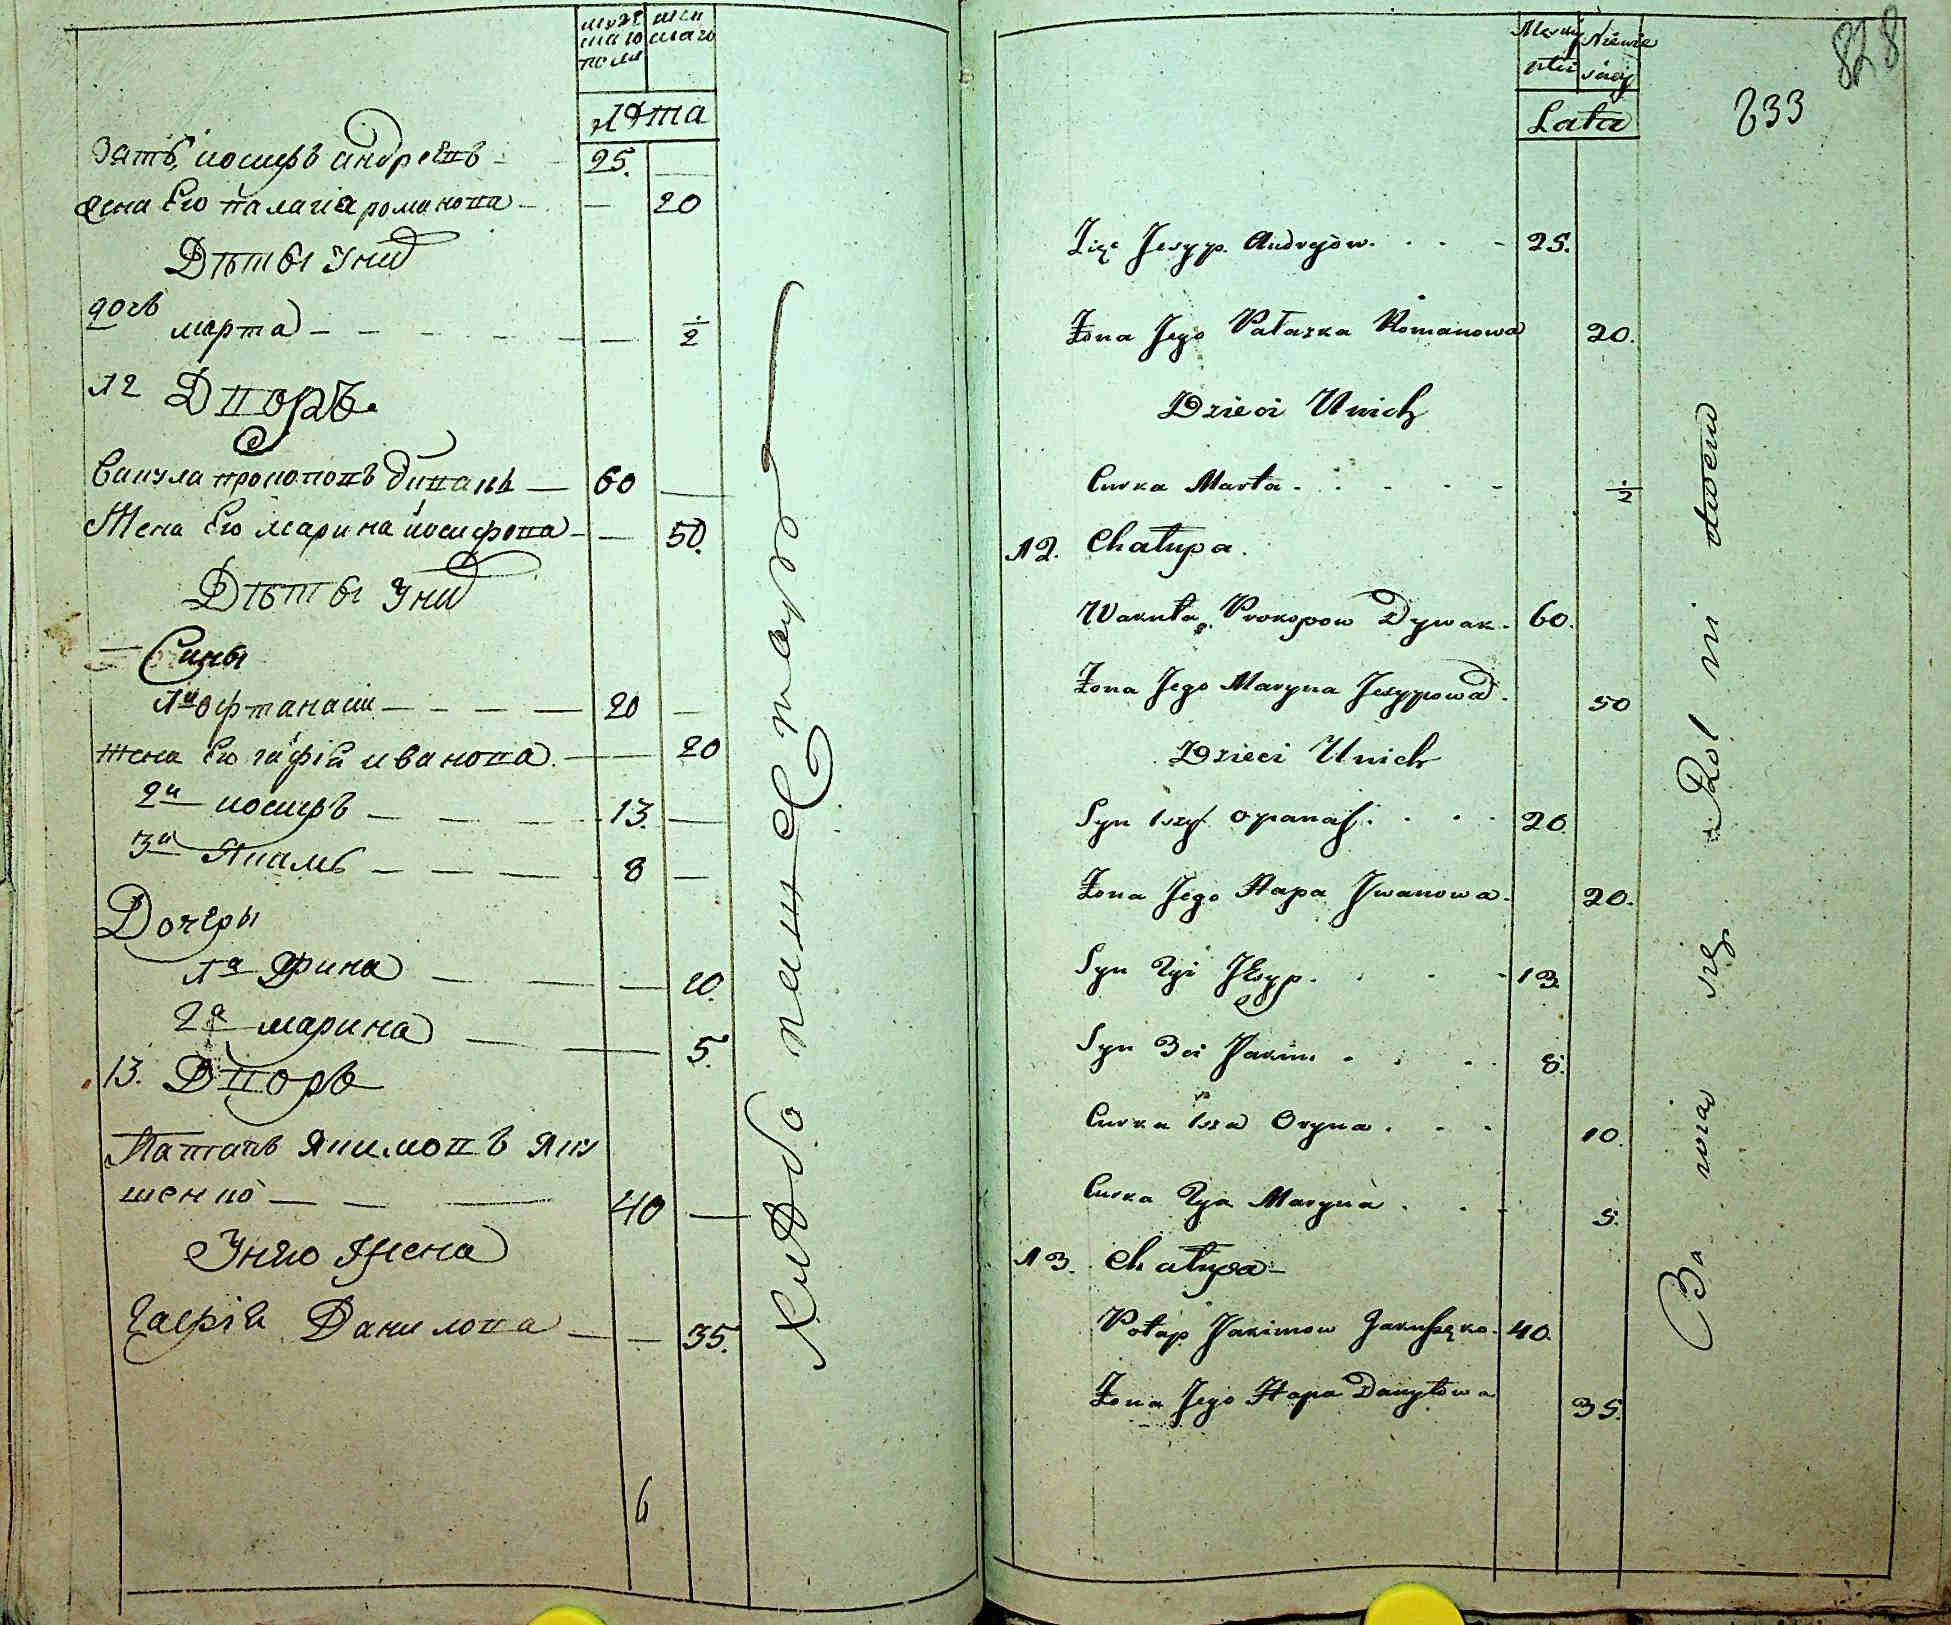 мужескаго пола
женскаго
лѣта
Зать, иосифъ андреевъ - 25. —
жена Его палагіа романова - — 20
Дѣты Уних
дочъ
марта - - - - - — 1/2
12 Дворъ.
Вакула прокоповъ дивакъ — 60 —
Жена Его марина иосифова - — 50.
Дѣты Уних
Сины
1й офтанасии - - - — 20 —
жена Его гафіа иванова. — — 20
2й иосифъ - - - - 13. —
3й Якимъ - - - - 8 —
Дочеры
1а Орина — — — 10.
2а марина — — 5.
13. Дворъ
Патапъ Якимовъ Яку
шенко — — — 40 —
Унего Жена
Гафіа Данилова — — 35.
6
Хлѣбопашествуют
828
833
Męskiey płci
Niewieściey
Lata
Zięć Jesyp Andryiow. . . - 25.
Żona Jego Pałaszka Romanowa 20.
Dzieci Unich
Curka Marta - . - - - 1/2
12. Chałupa.
Wakuła Prokopow Dywak. 60.
Żona Jego Maryna Jesypowa. 50
Dzieci Unich
Syn 1szy Opanas. . . . 20
Żona Jego Hapa Jwanowa. 20.
Syn 2gi Jesyp. . . - 13.
Syn 3ci Jakim . . . 8.
Curka 1sza Oryna. . . 10.
Curka 2ga Maryna . . - 5.
13. Chałupa
Potap Jakimow Jakuszęko. 40.
Żona Jego Hapa Danyłowa 35.
Bawią się Rolnictwem